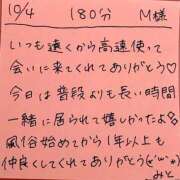 10/4 180分 M様
いつも遠くから高速使って
会いに来てくれてありがとう♡
今日は普段よりも長い時間
一緒に居られて嬉しかったよ
風俗始めてから1年以上も
仲良くしてくれてありがとう(*'ω'*)
みと